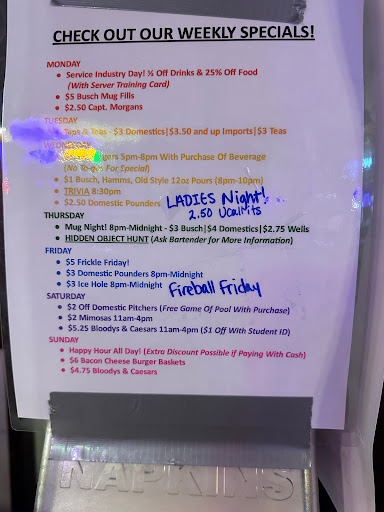 CHECK OUT OUR WEEKLY SPECIALS!
MONDAY
Service Industry Day! ½ Off Drinks & 25% Off Food
(With Server Training Card)
$5 Busch Mug Fills
$2.50 Capt. Morgans
TUESDAY
& Teas - $3 Domestics|$3.50 and up Imports|$3 Teas
WEDNESDAY
5pm-8pm With Purchase Of Beverage
(No To-go's For Special)
$1 Busch, Hamms, Old Style 12oz Pours (8pm-10pm)
TRIVIA 8:30pm
$2.50 Domestic Pounders
LADIES Night!
2.50 UCallits
THURSDAY
Mug Night! 8pm-Midnight - $3 Busch|$4 Domestics|$2.75 Wells
HIDDEN OBJECT HUNT (Ask Bartender for More Information)
FRIDAY
$5 Frickle Friday!
$3 Domestic Pounders 8pm-Midnight
$3 Ice Hole 8pm-Midnight
Fireball Friday
SATURDAY
$2 Off Domestic Pitchers (Free Game Of Pool With Purchase)
$2 Mimosas 11am-4pm
$5.25 Bloodys & Caesars 11am-4pm ($1 Off With Student ID)
SUNDAY
Happy Hour All Day! (Extra Discount Possible if Paying With Cash)
$6 Bacon Cheese Burger Baskets
$4.75 Bloodys & Caesars
NAPKINS